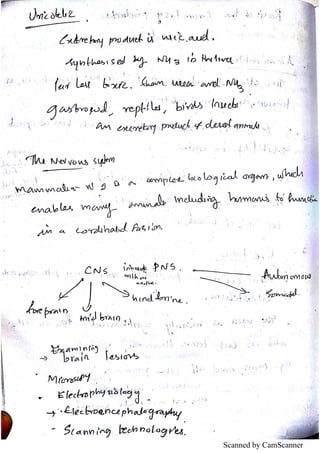 Uricotelic
Excretory product is uric acid.
Synthesised by NH3 in the liver
far less toxic than urea and NH3
gastropod, reptiles, birds Insects
an excretory product of desert animals
The Nervous System
mammalian N S is a complex biological organ, which
enables many animals including humans to function
in a cordinated fasion.
CNS PNS Autonomous
Somatic
forebrain mid brain hind brine.
→ Examining
brain lesions
- Microscopy
- Electrophysiology
→ Electroencephalography
- Scanning technologies.
Scanned by CamScanner